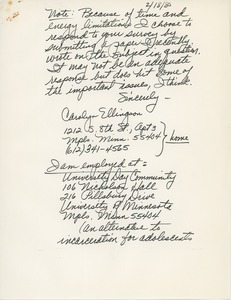 2/15/80
Note: Because of time and
energy limitations I choose to
respond to your survey by
submitting a paper I recently
wrote on the subject in question.
It may not be an adequate
response but does hit some of
the important issues, I think.
Sincerely -
Carolyn Ellingson
1212 S. 8th St, Apt 3
Mpls. Minn. 55404 } home
612/341-4565
I am employed at:
University Day Community
106 Nicholson Hall
216 Pillsbury Drive
University of Minnesota
Mpls. Minn 55404
(an alternative to
incarceration for adolescents